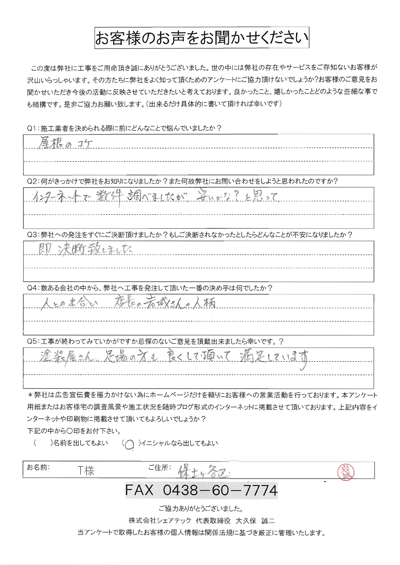 お客様のお声をお聞かせください
この度は弊社に工事をご用命頂き誠にありがとうございました。世の中には弊社の存在やサービスをご存知ないお客様が
沢山いらっしゃいます。その方たちに弊社をよく知って頂くためのアンケートにご協力頂けないでしょうか?お客様のご意見をお
聞かせいただき今後の活動に反映させていただきたいと考えております。良かったこと、嬉しかったことどのような些細な事で
も結構です。是非ご協力お願い致します。(出来るだけ具体的に書いて頂ければ幸いです)
Q1:施工業者を決められる際に前にどんなことで悩んでいましたか?
屋根のコケ
Q2:何がきっかけで弊社をお知りになりましたか?また何故弊社にお問い合わせをしようと思われたのですか?
インターネットで数件調べましたが、安いかな?と思って
Q3:弊社への発注をすぐにご決断頂けましたか?もしご決断されなかったとしたらどんなことが不安になりましたか?
即決断致しました
Q4:数ある会社の中から、弊社へ工事を発注して頂いた一番の決め手は何でしたか?
人との出合い 店長の岩城さんの人柄
Q5:工事が終わってみていかがですか忌憚のないご意見を頂戴出来ましたら幸いです。?
塗装屋さん、足場の方も良くして頂いて満足しています
*弊社は広告宣伝費を極力かけない為にホームページだけを頼りにお客様への営業活動を行っております。本アンケート
用紙またはお客様宅の調査風景や施工状況を随時ブログ形式のインターネットに掲載させて頂いております。上記内容をイ
ンターネットや印刷物に掲載させて頂いてもよろしいでしょうか?
下記の中から○印をお付下さい。
( )名前を出してもよい (○)イニシャルなら出してもよい
お名前: T様 ご住所: 保土ヶ谷区
FAX 0438-60-7774
ご協力ありがとうございました。
株式会社シェアテック 代表取締役 大久保 誠二
当アンケートで取得したお客様の個人情報は関係法規に基づき厳正に管理いたします。